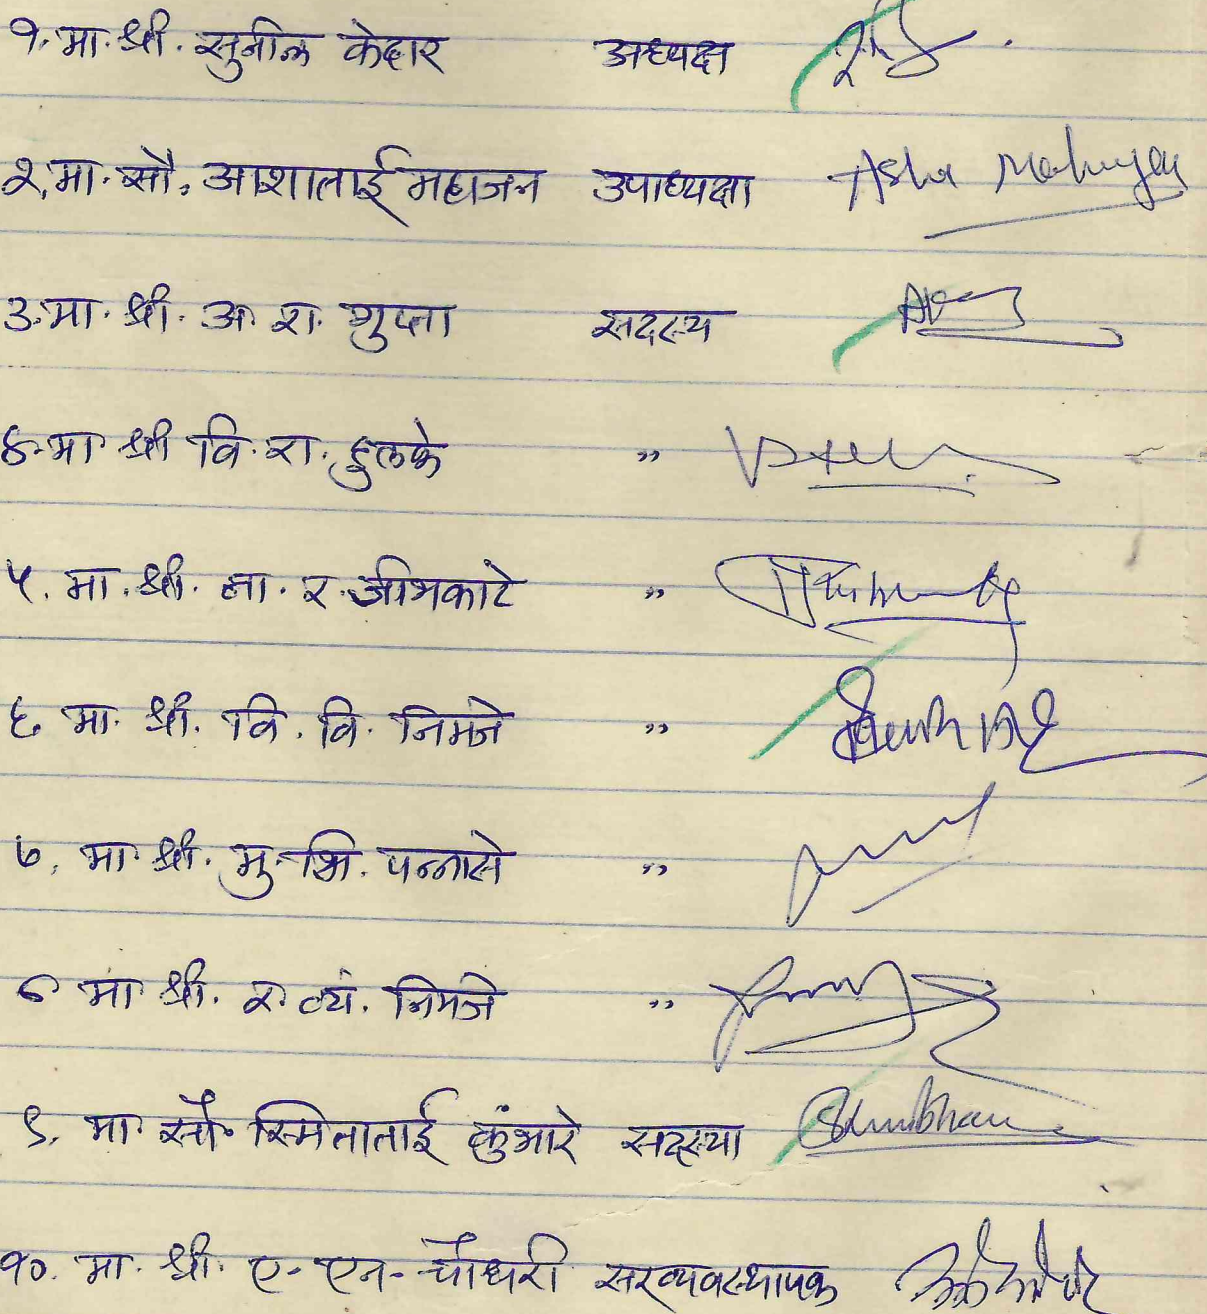 १. मा. श्री. सुनील केदार अध्यक्ष
२. मा. सौ. आशाताई महाजन उपाध्यक्षा Asha Mahajan
३. मा. श्री. अ. रा. गुप्ता सदस्य
४. मा श्री वि. रा. हुलके ,,
५. मा. श्री. ला. र. जीभकाटे ,,
६ मा. श्री. वि. वि. निमजे ,,
७. मा. श्री. मु. भि. पन्नासे ,,
८ मा श्री. र. व्यं. निमजे ,,
९. मा. सौ. स्मिताताई कुंभारे सदस्या
१०. मा. श्री. ए. एन. चौधरी सरव्यवस्थापक